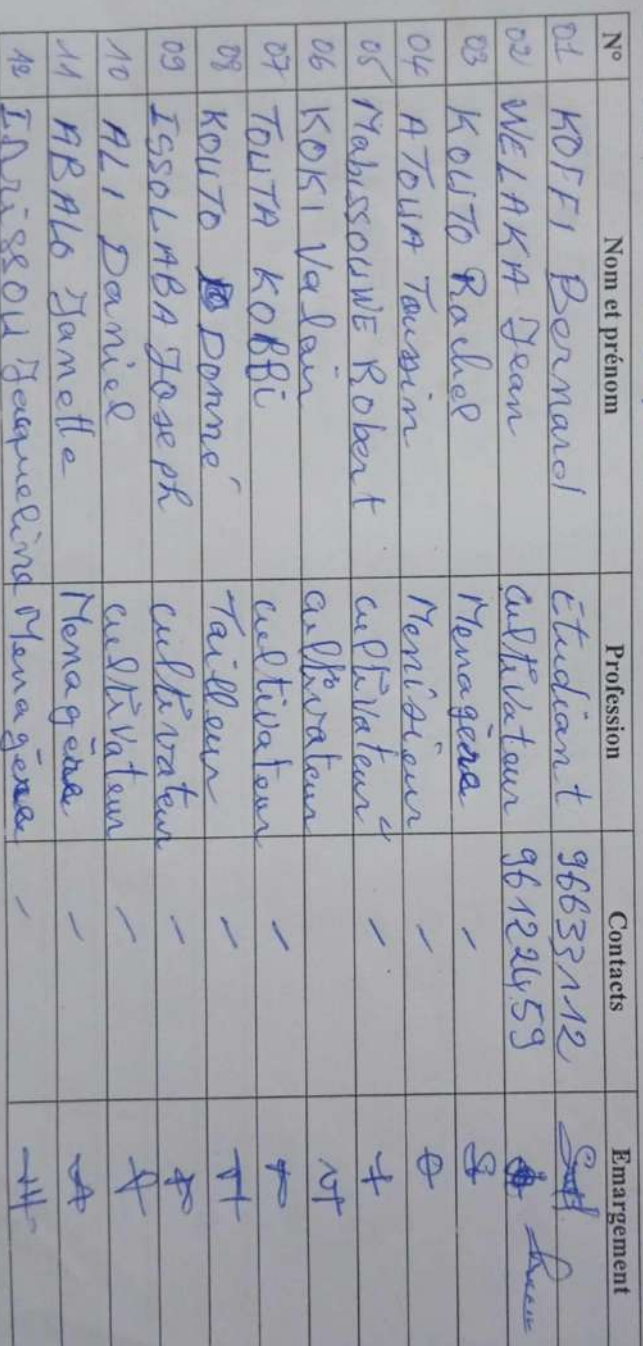 N° Nom et prénom Profession Contacts Emargement
01 KOFFI Bernard Etudiant 96633112
02 WELAKA Jean cultivateur 96122459
03 KOUTO Rachel Menagère -
04 ATOUA Toussin Menisieur -
05 MabissOUWE Robert cultivateur -
06 KOKI Valair cultivateur
07 TOUTA KOBBi cultivateur -
08 KOUTO Donné Tailleur -
09 ISSOLABA Joseph cultivateur -
10 ALI Daniel cultivateur -
11 ABALO Janette Menagère -
12 IDRISSOU Jacqueline Menagère -